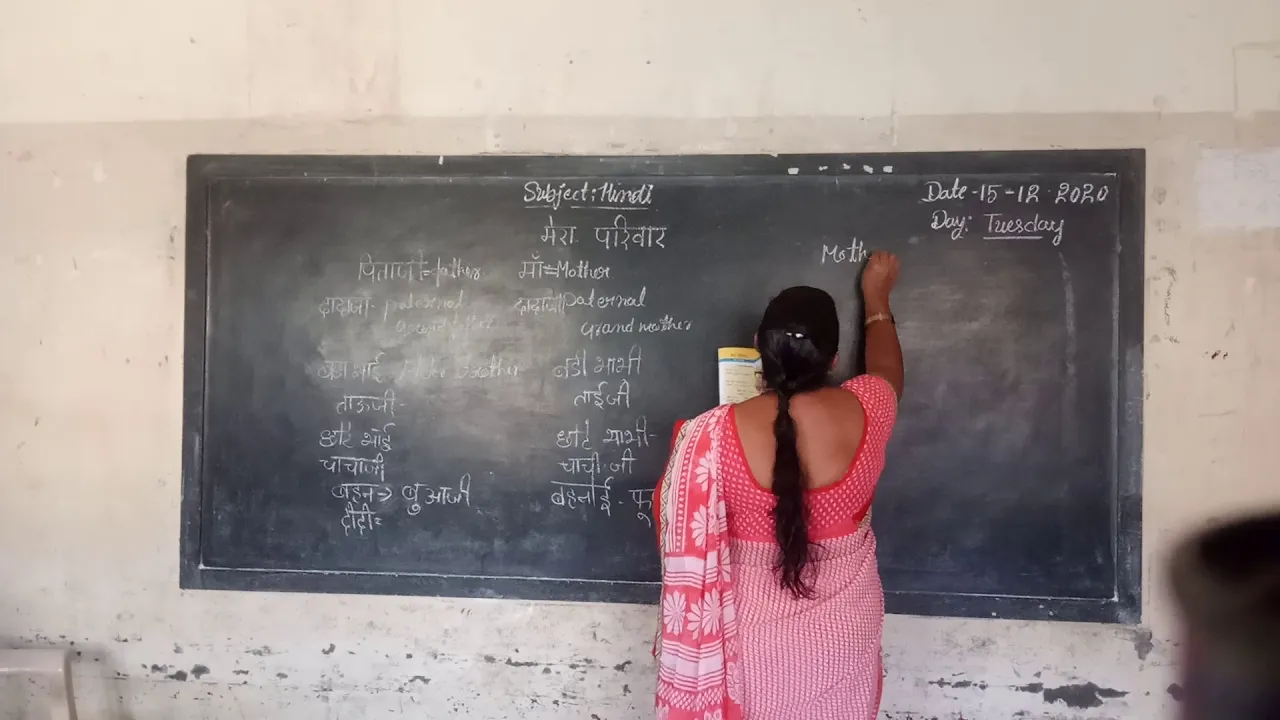 Subject: Hindi
Date - 15 - 12 2020
Day: Tuesday
मेरा परिवार
Moth
पिताजी = father माँ = Mother
दादाजी - paternal दादाजी paternal
grand father grand mother
बडा भाई brother बडी भाभी
ताऊजी - ताईजी
छोटे भाई छोटी भाभी -
चाचाजी चाची जी
बहन → बुआजी बहनोई - फू
दीदी =